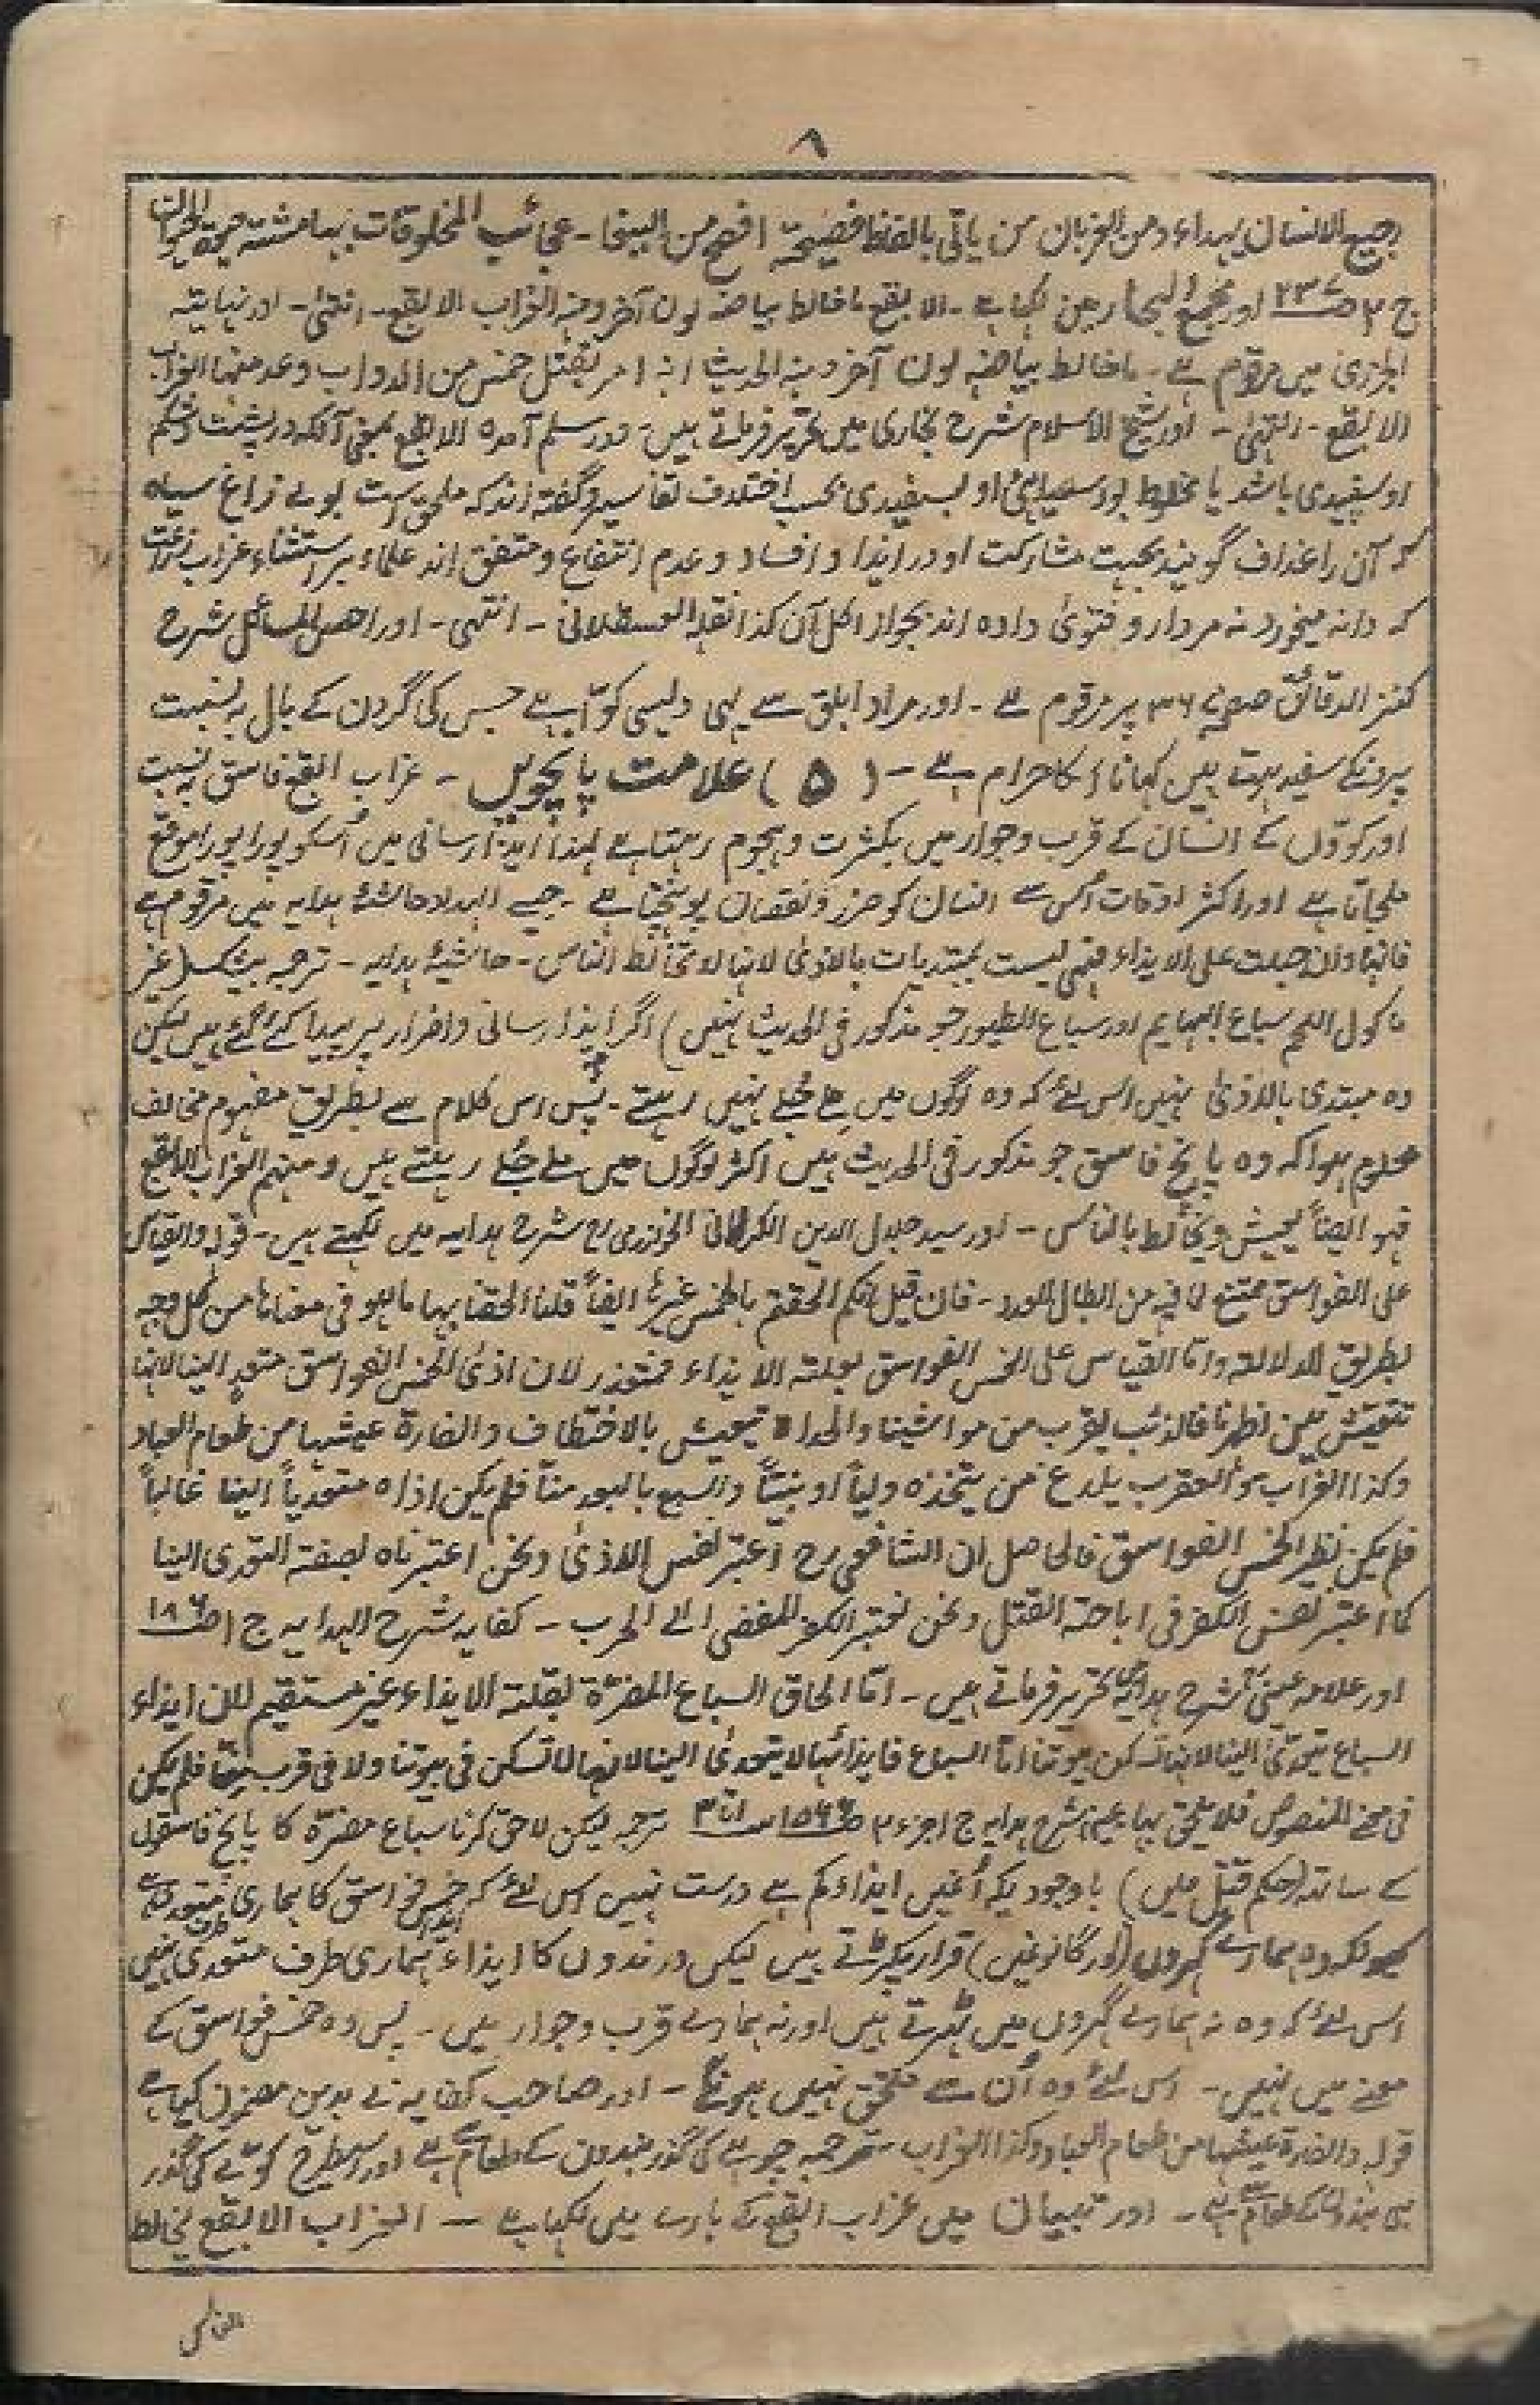 ۸
جمیع الانسان بہذاء ومن الغربان من یاتی بالفاظ فصیحۃ افصح من الببغا ۔ عجائب المخلوقات بہامشتہ حیوۃ الحیوان
ج ۲ ص ۲۳۷ اور مجمع البحار میں لکہا ہے ۔ الابقع ماخالط بیاضہ لون آخر ومنہ الغراب الابقع ۔ انتہیٰ ۔ اور نہایتہ
الجزری میں مرقوم ہے ۔ ماخالط بیاضہ لون آخر ومنہ الحدیث انہ امر بقتل خمس من الدواب وعد منہا الغراب
الابقع ۔ انتہیٰ ۔ اور شیخ الاسلام شرح بخاری میں تحریر فرماتے ہیں ۔ ودر مسلم آمدہ الابقع بمعنی آنکہ در پشت وشکم
او سپیدی باشد یا مخلوط بود سیاہی او بسفیدی بحسب اختلاف تفاسیر وگفتہ اند کہ ملحق است بوے زاغ سیاہ
کہ آن را غداف گویند بجہت مشارکت او در ایذا و افساد وعدم انتفاع ومتفق اند علماء بر استثناء غراب زراعت
کہ دانہ میخورد نہ مردار و فتویٰ دادہ اند بجواز اکل آن کذا نقلہ القسطلانی ۔ انتہی ۔ اور احسن المسائل شرح
کنز الدقائق صفحہ ۳۶ پر مرقوم ہے ۔ اور مراد ابلق سے یہی دلیسی کوّا ہے جس کی گردن کے بال بہ نسبت
پرونکے سفید ہوتے ہیں کہانا اسکا حرام ہے ۔ (۵) علامت پانچویں ۔ غراب ابقع فاسق بہ نسبت
اور کوّوں کے انسان کے قرب وجوار میں بکثرت وہجوم رہتا ہے لہٰذا ایذا رسانی میں اُسکو پورا پورا موقع
ملجاتا ہے اور اکثر اوقات اُس سے انسان کو ضرر ونقصان پہونچتا ہے ۔ جیسے الہداد حاشیۂ ہدایہ میں مرقوم ہے
فانہا وان جبلت علی الایذاء فہی لیست بمبتدیات بالاذیٰ لانہا لا تخالط الناس ۔ حاشیۂ ہدایہ ۔ ترجمہ بیشک (غیر
ماکول اللحم سباع البہایم اور سباع الطیور جو مذکور فی الحدیث نہیں) اگر ایذا رسانی واضرار پر پیدا کئے گئے ہیں لیکن
وہ مبتدی بالاذیٰ نہیں اس لئے کہ وہ لوگوں میں ملے جلے نہیں رہتے ۔ پس اس کلام سے بطریق مفہوم مخالف
معلوم ہوا کہ وہ پانچ فاسق جو مذکور فی الحدیث ہیں اکثر لوگوں میں ملے جلے رہتے ہیں ومنہم الغراب الابقع
فہو ایضاً یعیش ویخالط بالناس ۔ اور سید جلال الدین الکرلانی الخوارزمی رح شرح ہدایہ میں لکہتے ہیں ۔ قولہ والقیاس
علی الفواسق ممتنع لما فیہ من ابطال العدد ۔ فان قیل انکم الحقتم بالخمس غیرہا ایضاً قلنا الحقنا بہا ماہو فی معناہا من کل وجہ
بطریق الدلالۃ واما القیاس علی الخمس الفواسق بعلۃ الایذاء متعذر لان اذیٰ الخمس الفواسق متعد الینا لانہا
تتعیش بین اظہرنا فالذئب یقرب من مواشینا والحداۃ تعیش بالاختطاف والفارۃ عیشہا من طعام العباد
وکذا الغراب والعقرب یلدغ من یتخذہ ولیاً او بنیتاً والسبع بالبعد منا فلم یکن اذاہ متعدیاً الینا غالباً
فلم یکن نظیر الخمس الفواسق فالحاصل ان الشافعی رح اعتبر نفس الاذیٰ ونحن اعتبرناہ بصفۃ التعدی الینا
کما اعتبر نفس الکفر فی اباحۃ القتل ونحن نعتبر الکفر المفضی الی الحرب ۔ کفایہ شرح الہدایہ ج ۱ ص ۱۸۶
اور علامہ عینی شرح ہدایہ تحریر فرماتے ہیں ۔ امّا الحاق السباع المضرۃ بعلۃ الایذاء غیر مستقیم لان ایذاء
السباع یتعدیٰ الینا لانہا تسکن بیوتنا امّا السباع فایذائہا لا یتعدیٰ الینا لانہا لا تسکن فی بیوتنا ولا فی قرب منا فلم یکن
فی معنی المنصوص فلا یلحق بہا عینی شرح ہدایہ ج ۱ جزء ۳ ص ۱۵۶۶ ترجمہ لیکن لاحق کرنا سباع مضرّۃ کا پانچ فاسقوں
کے ساتہ (حکم قتل میں) باوجودیکہ اُنمیں ایذاء کم ہے درست نہیں اس لئے کہ خمس فواسق کا ہماری طرف متعدی ہے
کیونکہ وہ ہمارے گہروں (اور گانونمیں) قرار پکڑتے ہیں لیکن درندوں کا ایذاء ہماری طرف متعدی نہیں
اس لئے کہ وہ نہ ہمارے گہروں میں ٹہرتے ہیں اور نہ ہمارے قرب وجوار میں ۔ پس وہ خمس فواسق کے
معنے میں نہیں ۔ اس لئے وہ اُن سے ملحق نہیں ہونگے ۔ اور صاحب کفایہ نے بدین مضمون کہا ہے
قولہ والفارۃ عیشہا من طعام العباد وکذا الغراب ترجمہ چوہے کی گذر بندوں کے طعام سے ہے اور اسیطرح کوّے کی گذر
بہی بندونکے طعام سے ہے ۔ اور تبیان میں غراب ابقع کے بارے میں لکہا ہے ۔ الغراب الابقع یخالط
الناس